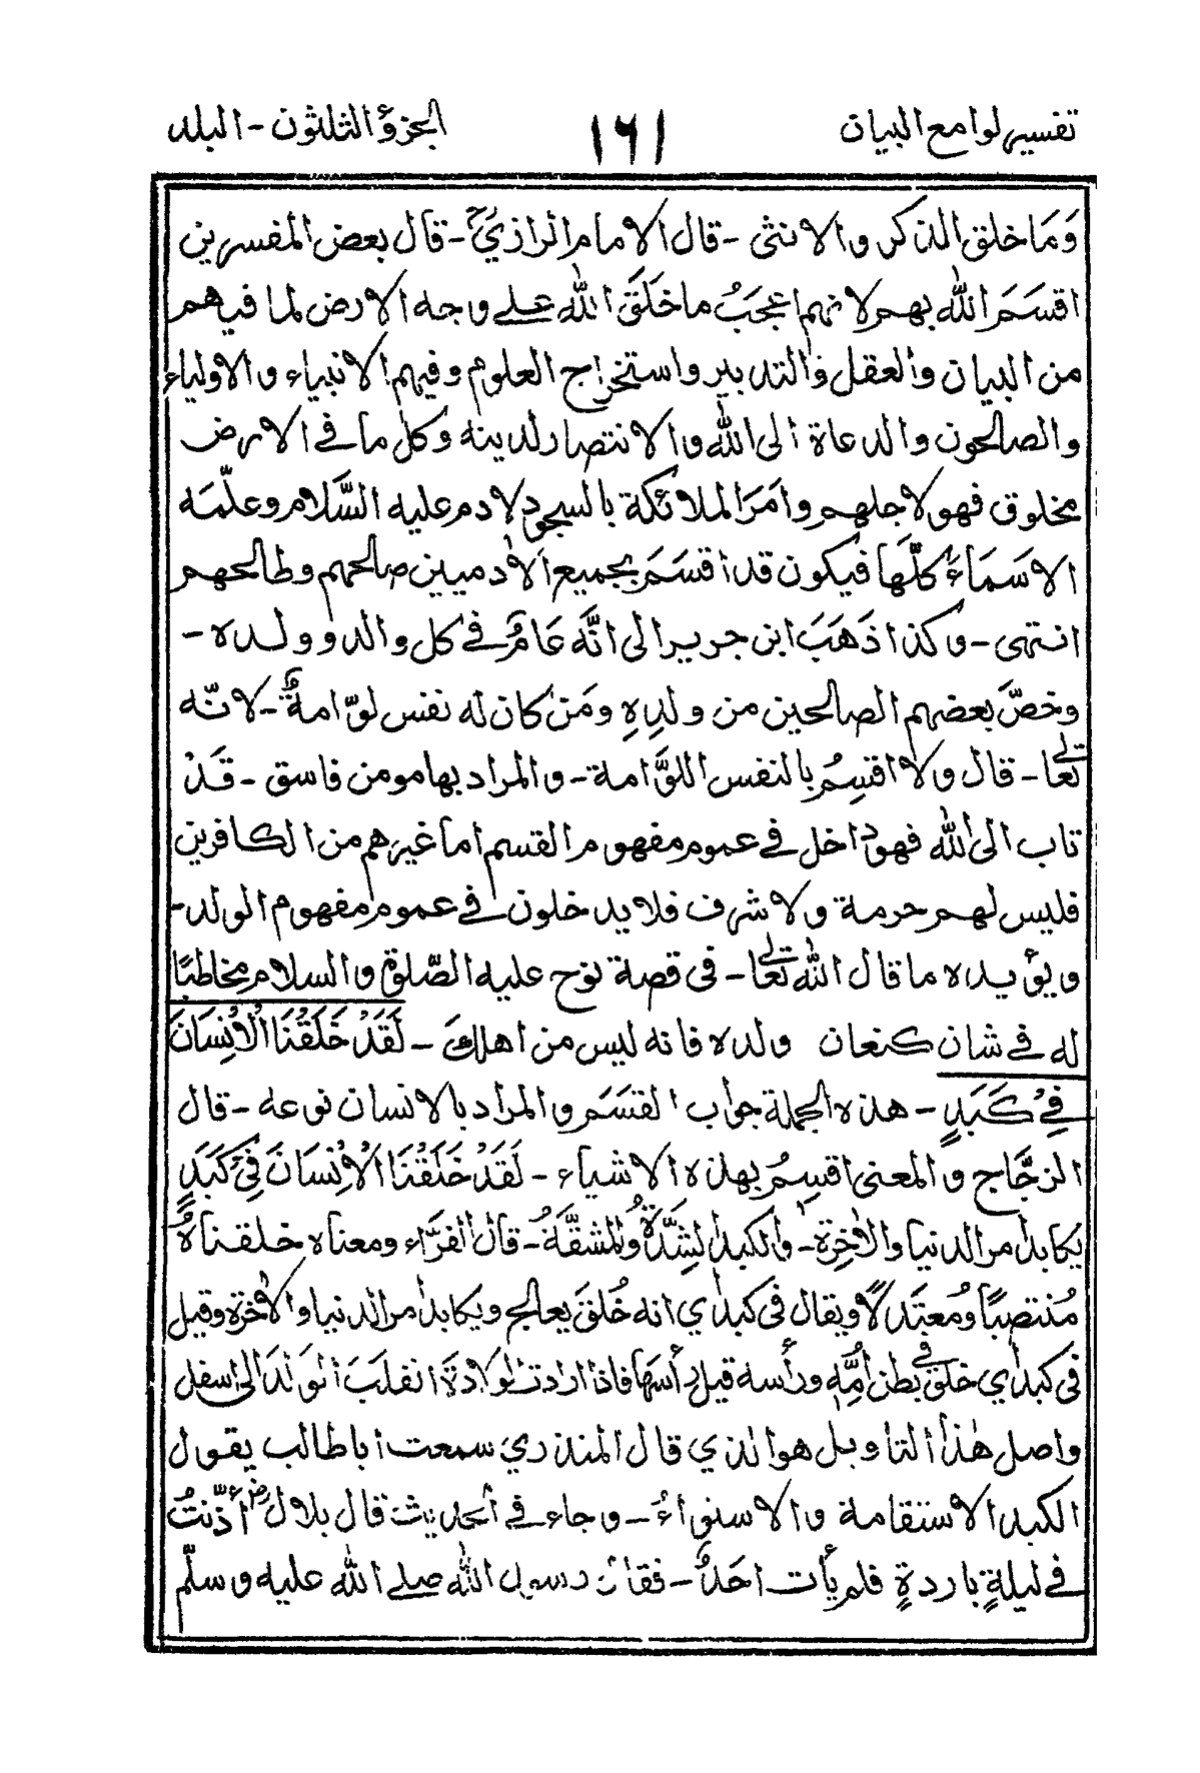 تفسير لوامع البيان ١٦١ الجزؤ الثلثون - البلد
وَمَا خلق الذكر والانثى - قال الامام الرازيؒ - قال بعض المفسرين
اقسَمَ الله بهم لانهم اعجَبُ ما خَلَقَ الله على وجه الارض لما فيهم
من البيان والعقل والتدبير واستخراج العلوم وفيهم الانبياء والاولياء
والصالحون والدعاة الى الله والانتصار لدينه وكل ما في الارض
مخلوق فهو لاجلهم وامَرَ الملائكة بالسجود لادم عليه السَّلام وعلّمَه
الاسَمَاءَ كلَّها فيكون قد اقسَمَ بجميع الادميين صالحهم وطالحهم
انتهى - وكذا ذَهَبَ ابن جرير الى انَّه عَامٌ في كل والد وولده -
وخصَّ بعضهم الصالحين من ولدِهِ ومَن كان له نفس لوّامةٌ - لانّه
تعالى - قال ولا اقسِمُ بالنفس اللوَّامة - والمراد بها مومن فاسق - قَدْ
تاب الى الله فهو داخل في عموم مفهوم القسم اما غيرهم من الكافرين
فليس لهم حرمة ولا شرف فلا يدخلون في عموم مفهوم الولد -
ويؤيده ما قال الله تعالى - في قصة نوح عليه الصّلوة والسلام مخاطبًا
له في شان كنعان ولده فانه ليس من اهلك - لَقَدْ خَلَقْنَا الْاِنْسَانَ
فِيْ كَبَدٍ - هذه الجملة جواب القسَم والمراد بالانسان نوعه - قال
الزجَّاج والمعنى اقسِمُ بهذه الاشياء - لَقَدْ خَلَقْنَا الْاِنْسَانَ فِيْ كَبَدٍ
يكابد امر الدنيا والاٰخِرة - والكبد الشِدَّةُ والمشقَّةُ - قال الفرَّاء ومعناه خلقناهُ
مُنتصِبًا ومُعتَدلًا ويقال في كبد اي انه خُلقَ يعالج ويكابد امر الدنيا والاٰخرة وقيل
في كبد اي خلق في بطن اُمِّه ورأسه قبل رأسها فاذا اردت الولادةَ انقلَبَ الوَلَدَ الى اسفل
واصل هٰذا التاويل هو الذي قال المنذري سمعت اباطالب يقول
الكبد الاستقامة والاستواءُ - وجاء في الحديث قال بلالؓ اَذّنتُ
في ليلةٍ باردةٍ فلم يأت احَدٌ - فقال رسول الله صلے الله عليه وسلّم